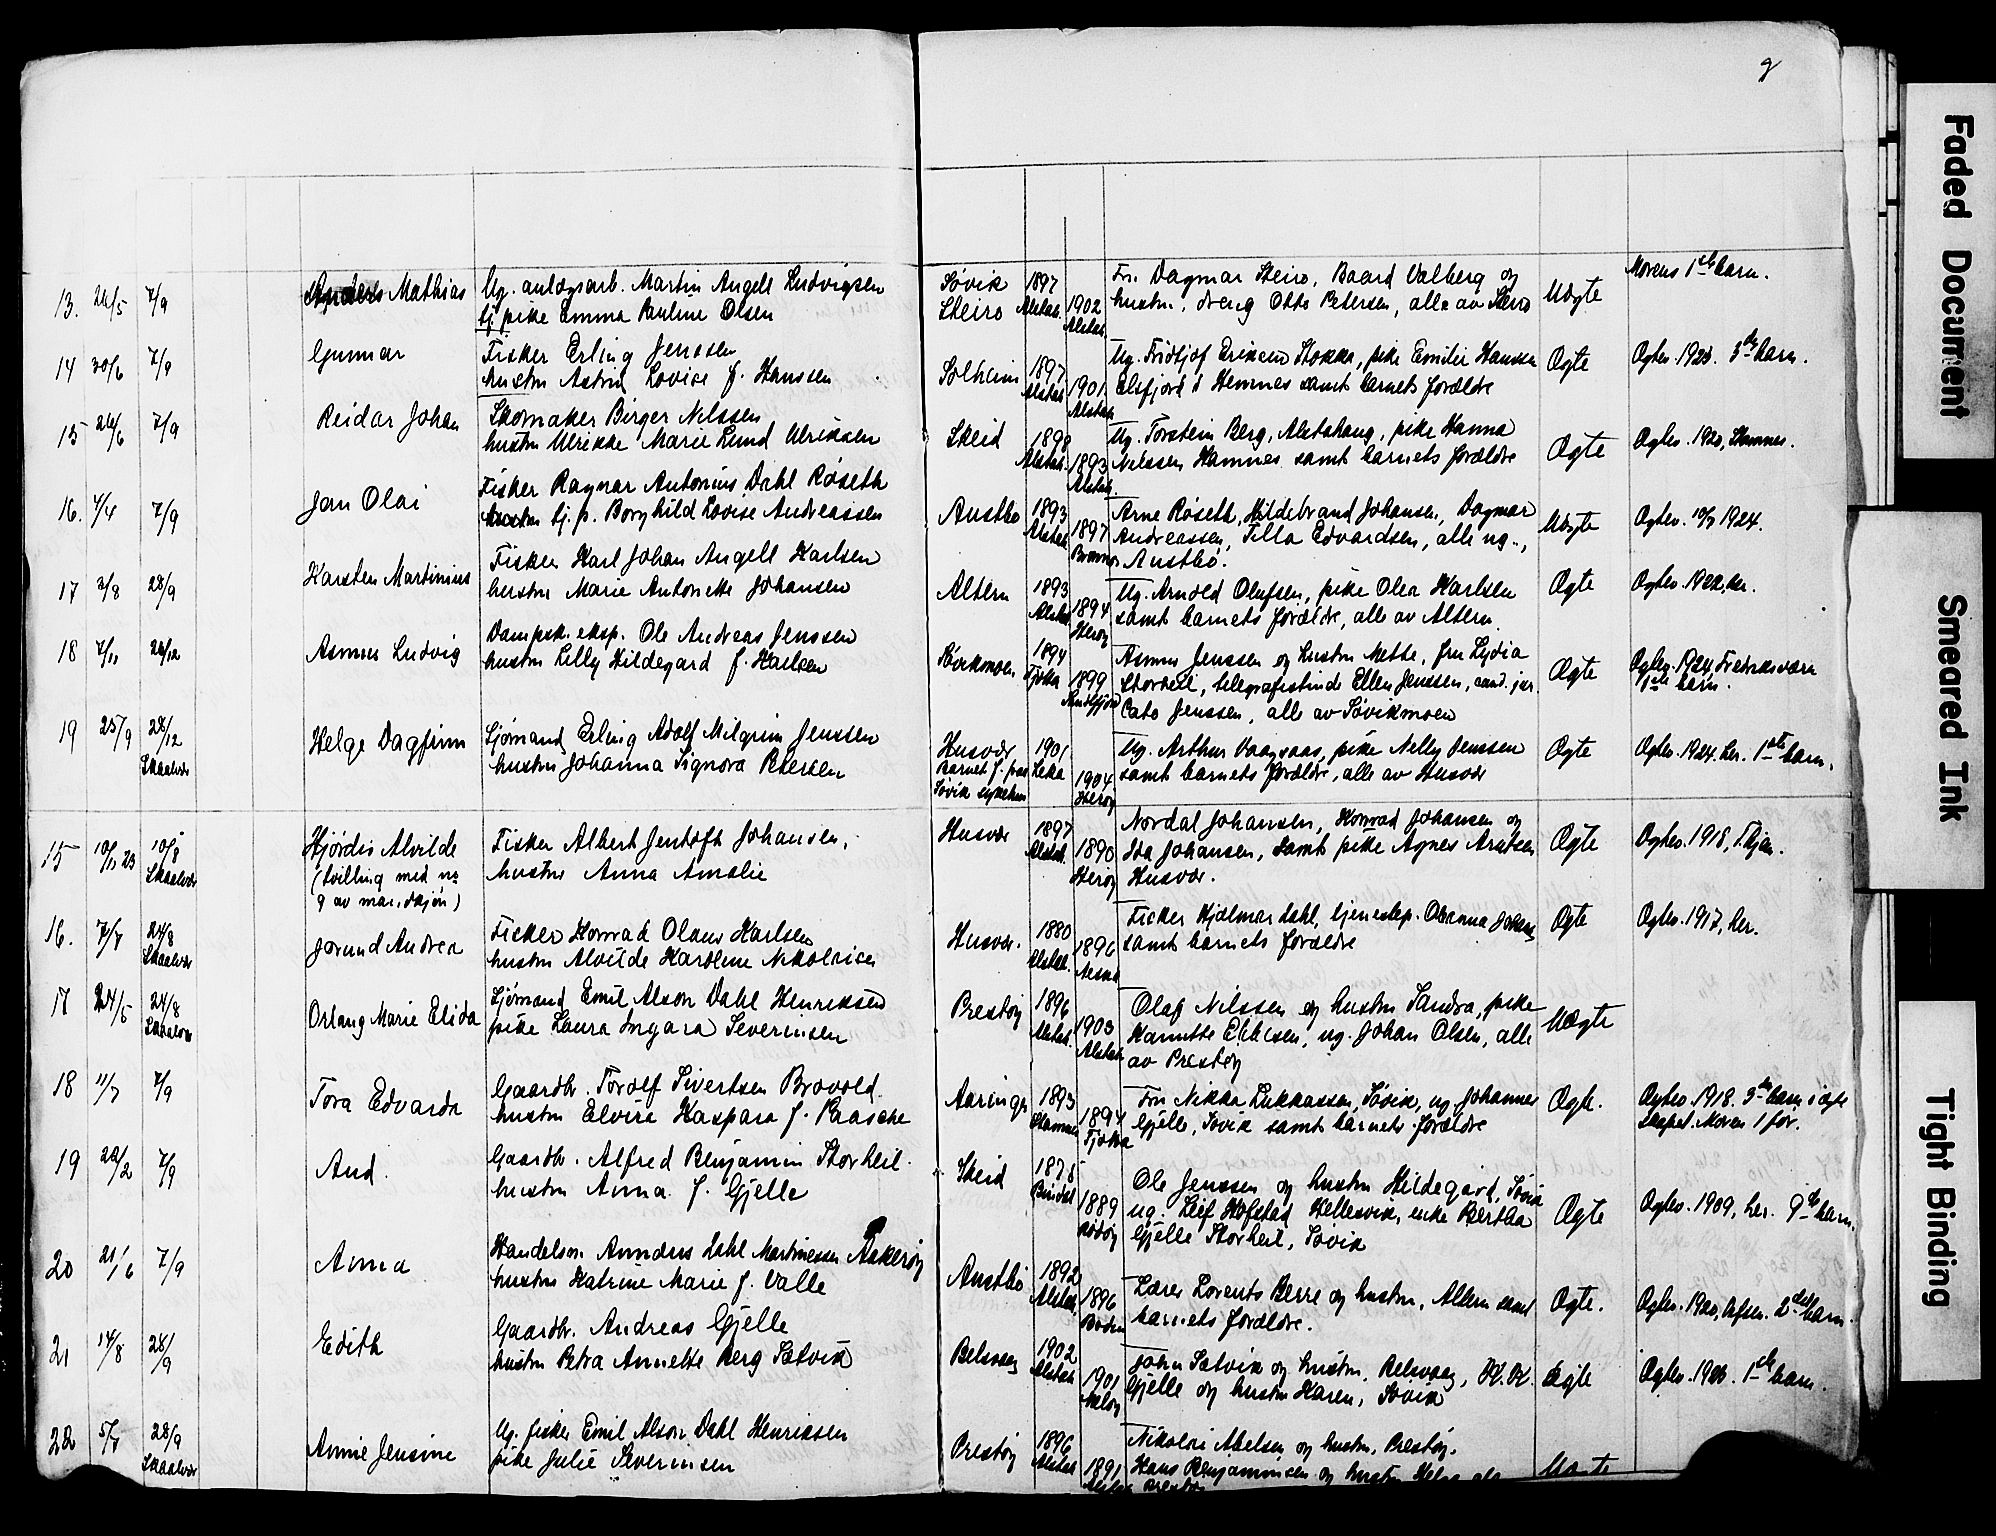 9
13. 24/5 7/9 Anders Mathias Ug. anlægsarb. Martin Angell Ludvigsen Søvik 1897 Alstah. Fru Dagmar Skeiro, Baard Valberg og Uægte Morens 1ste barn.
tj. pike Emma Pauline Olsen Skeiro 1902 Alstah. hustru, dreng Otto Petersen, alle av Skeiro
14 30/6 7/9 Gunnar Fisker Erling Jenssen Solheim 1897 Alstah. Ug. Fridtjof Eriksen Stokka, pike Emilie Hanssen Ægte Ægtev. 1920. 3die barn.
hustru Astrid Lovise f. Hanssen 1901 Alstah. Elsfjord i Hemnes samt barnets forældre
15 26/6 7/9 Reidar Johan Skomaker Birger Nilssen Skeid 1898 Alstah. Ug. Torstein Berg, Alstahaug, pike Hanna Ægte Ægtev. 1920, Stamnes.
hustru Ulrikke Marie Lund Ulriksen 1893 Alstah. Nilssen Hamnes samt barnets forældre
16. 4/4 7/9 Jan Olai Fisker Ragnar Antonius Dahl Røseth Austbø 1893 Alstah. Arne Røseth, Hildebrand Johansen, Dagmar Uægte Ægtev. 10/7 1924.
tj. p. Borghild Lovise Andreassen 1897 Andreassen, Tilla Edvardsen, alle ug.,
Austbø.
17 3/8 28/9 Karsten Martinius Fisker Karl Johan Angell Karlsen Altern 1893 Alstah. Ug. Arnold Olufsen, pike Olea Karlsen Ægte Ægtev. 1922, her.
hustru Marie Antonette Johansen 1894 Herøy samt barnets forældre, alle av Altern.
18 7/11 26/12 Asmus Ludvig Dampsk. eksp. Ole Andreas Jenssen Søvikmoen 1894 Tjøtta Asmus Jenssen og hustru Mette, fru Lydia Ægte Ægtev. 1924 Fredriksværn
hustru Lilly Hildegard f. Karlsen 1899 Storheil, telegrafistinde Ellen Jenssen, cand. jur. 1ste barn.
Cato Jenssen, alle av Søvikmoen
19 25/9 28/12 Skaalvær Helge Dagfinn Sjømand Erling Adolf Milgrim Jenssen Husvær 1901 Leka Ug. Arthur Vaagaas, pike Nelly Jenssen Ægte Ægtev. 1924. her. 1ste barn.
hustru Johanna Signora Petersen Barnet f. paa Søvik sykehus 1904 Herøy samt barnets forældre, alle av Husvær
15 10/11 23 10/8 Skaalvær Hjørdis Alvilde Fisker Albert Jentoft Johansen, Husvær 1897 Alstah. Nordal Johansen, Konrad Johansen og Ægte Ægtev. 1918, Tskjøn.
(tvilling med no hustru Anna Amalie 1890 Herøy Ida Johansen, samt pike Agnes Arntsen
9 av man. skjøn) Husvær.
16. 7/7 24/8 Skaalvær Jorund Andrea Fisker Konrad Olaus Karlsen Husvær. 1880 Alstah. Fisker Hjalmar Dahl, tjenestep. Johans. Ægte Ægtev. 1917, her.
hustru Alvilde Karoline Nikolaisen 1896 samt barnets forældre
17 24/5 24/8 Skaalvær Orlaug Marie Elida Sjømand Emil Alson Dahl Henriksen Prestøy 1896 Alstah. Olaf Nilssen og hustru Sandra, pike Uægte
pike Laura Ingara Severinsen 1903 Alstah. Hannette Eliksen, ug. Johan Olsen, alle
av Prestøy
18 11/7 7/9 Tora Edvarda Gaardbr. Torolf Sivertsen Brovold. 1893 Stamnes Fru Nikka Lukkassen, Søvik, ug. Johannes Ægte. Ægtev. 1918. 3die barn i ægte
hustru Elvira Kaspara f. Paasche 1894 Tjøtta Gjelle, Søvik samt barnets forældre skapet. Moren 1 før.
19 22/2 7/9 Aud. Gaardbr. Alfred Benjamin Storheil. Skeid 1878 Bindal Ole Jenssen og hustru Hildegard, Søvik Ægte Ægtev. 1909, her. 9de barn.
hustru Anna f. Gjelle 1889 Rødøy ug. Leif Hofstad Hellesvik, enke Bertha
Gjelle Storheil, Søvik
20 21/6 7/9 Anna Handelsm. Anders Dahl Martinessen Aakerøy Austbø 1892 Alstah. Lærer Lorents Berre og hustru, Altern samt Ægte. Ægtev. 1920, 2det barn.
hustru Katrine Marie f. Valle 1896 Bodin barnets forældre.
21 14/8 28/9 Edith Gaardbr. Andreas Gjelle Belsvaag 1902 Alstah. John Sætvik og hustru, Belsvaag, K. K. Ægte Ægtev. 1923. 1ste barn.
hustru Petra Annette Berg Sætvik 1901 Meløy Gjelle og hustru Karen, Søvik
22 5/7 28/9 Skaalvær Annie Jensine Ug. fisker Emil Alson Dahl Henriksen Prestøy 1896 Alstah. Nikolai Abelsen og hustru, Prestøy. Uægte
pike Julie Severinsen 1891 Hans Benjaminsen og hustru
Faded Document
Smeared Ink
Tight Binding